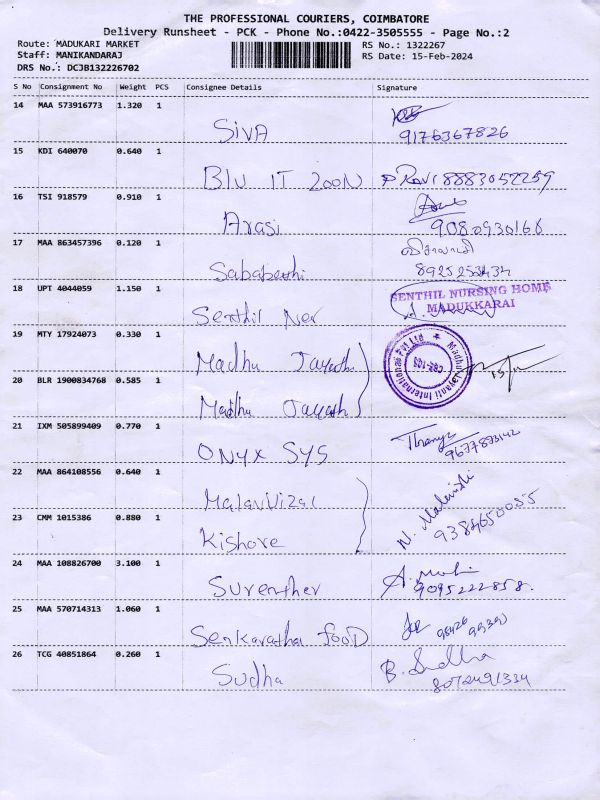 THE PROFESSIONAL COURIERS, COIMBATORE
Delivery Runsheet - PCK - Phone No.:0422-3505555 - Page No.:2
Route: MADUKARI MARKET RS No.: 1322267
Staff: MANIKANDARAJ RS Date: 15-Feb-2024
DRS No.: DCJB132226702
S No Consignment No Weight PCS Consignee Details Signature
14 MAA 573916773 1.320 1
SIVA 9176367826
15 KDI 640070 0.640 1
BLU IT ZOON P Ravi 8883052259
16 TSI 918579 0.910 1
Arasi 9080930166
17 MAA 863457396 0.120 1
Sabapethi 8925253434
18 UPT 4044059 1.150 1
Senthil Ner SENTHIL NURSING HOME
MADUKKARAI
19 MTY 17924073 0.330 1
Madhu Jayanth
Madhu Jayanti International Pvt Ltd
20 BLR 1900834768 0.585 1
Madhu Jayanth
21 IXM 505899409 0.770 1
ONYX SYS
22 MAA 864108556 0.640 1
Malarvizal
23 CMM 1015386 0.880 1
Kishore N. 9384650055
24 MAA 108826700 3.100 1
Surenther 9095222858.
25 MAA 570714313 1.060 1
Senkaratha FOOD
26 TCG 40851864 0.260 1
Sudha B. Sudha
8072491334